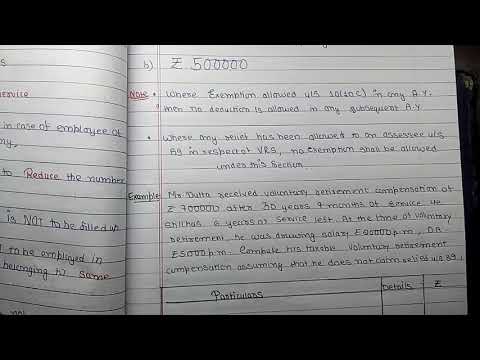 s
service
in case of employee of
ny.
to Reduce the number
is NOT to be filled up
to be employed in
belonging to same
b) ₹ 500000
Note: • Where Exemption allowed u/s 10(10C) in any A.Y.
then no deduction is allowed in any subsequent A.Y
• Where any relief has been allowed to an assessee u/s
89 in respect of VRS, no exemption shall be allowed
under this section.
Example: Mr. Dutta received voluntary retirement compensation of
₹ 700000 after 30 years 4 months of service. He
still has 6 years of service left. At the time of voluntary
retirement, he was drawing salary ₹20000 p.m, DA
₹5000 p.m. Compute his taxable voluntary retirement
compensation assuming that he does not claim relief u/s 89.
Particulars Details ₹